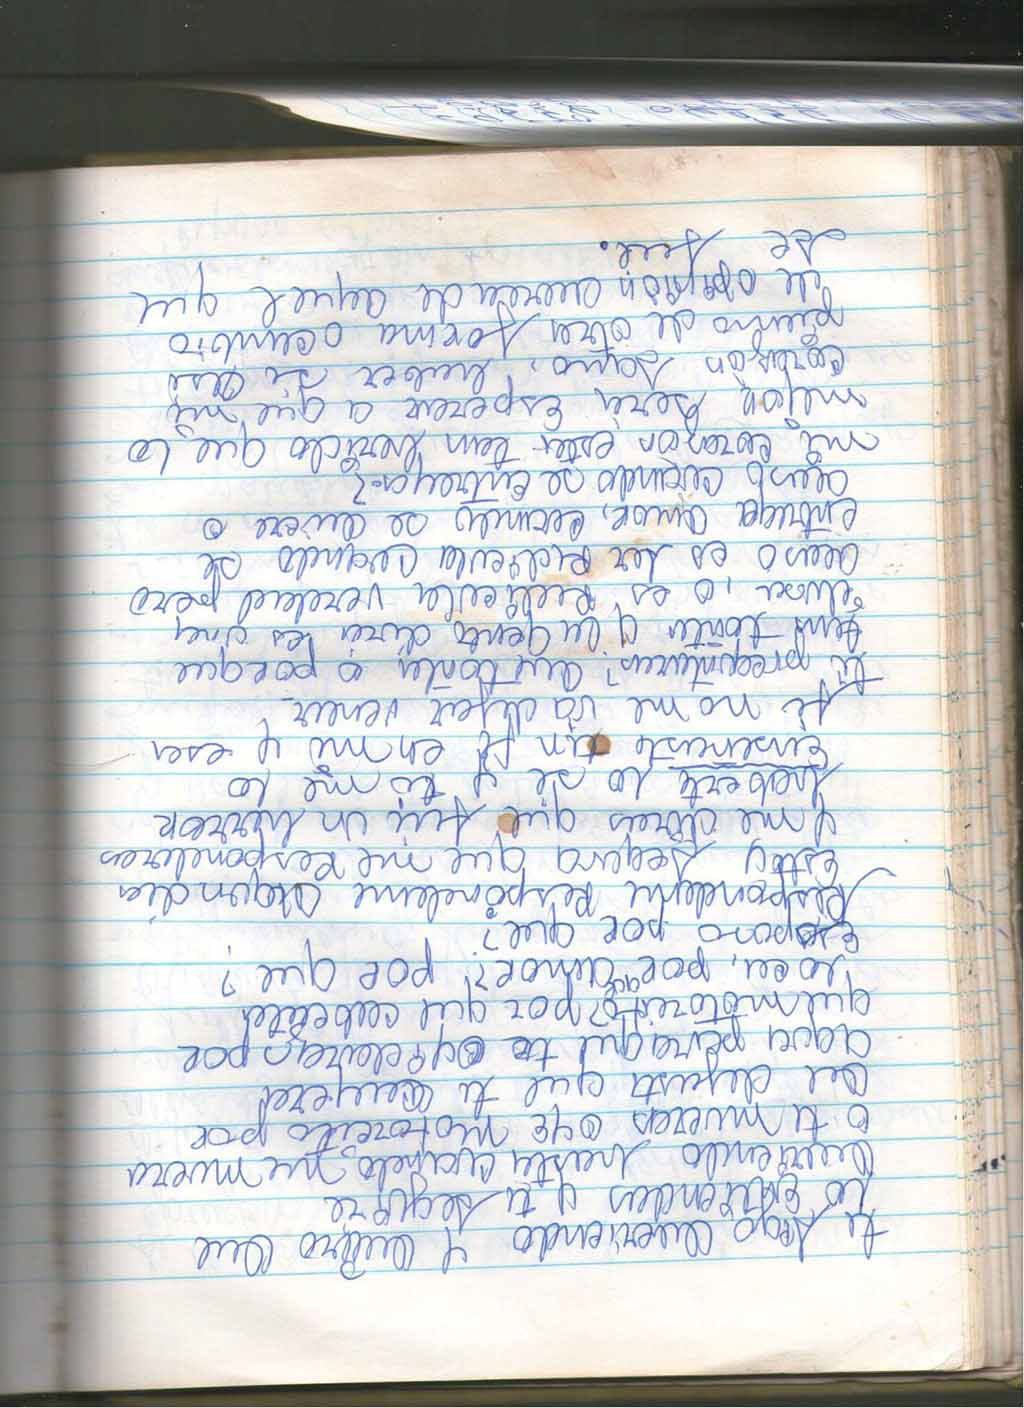 te sigo Queriendo y Quiero Que
lo Entiendas y te seguire
Queriendo hasta cuando me muera
o tu mueras oye motorcito por
que dejasta que te
aqui para que te por
que motorcito? por que
lo ei, por amor? por que?
Esposo por que?
Respondeme Respondeme algun dia
Estoy segura que me Responderas
y me diras que fui un error
haberte lo se y tu me lo
Enseñaste tin fe en mi y esa
fe no me va dejar vencer
te preguntaras? Que tonta o porque
tan tonta y la gente dira les una
ilusa, o es Ridicula verdad pero
acaso es ser Ridicula cuando se
entrega amor, cuando se quiere o
acaso cuando se entrega?
mi corazon estar tan herido que lo
mejor sera Esperar a que mi
corazon sane, haber si asi
pienso de otra forma o cambio
de opinion acerca de aquel que
se fue.